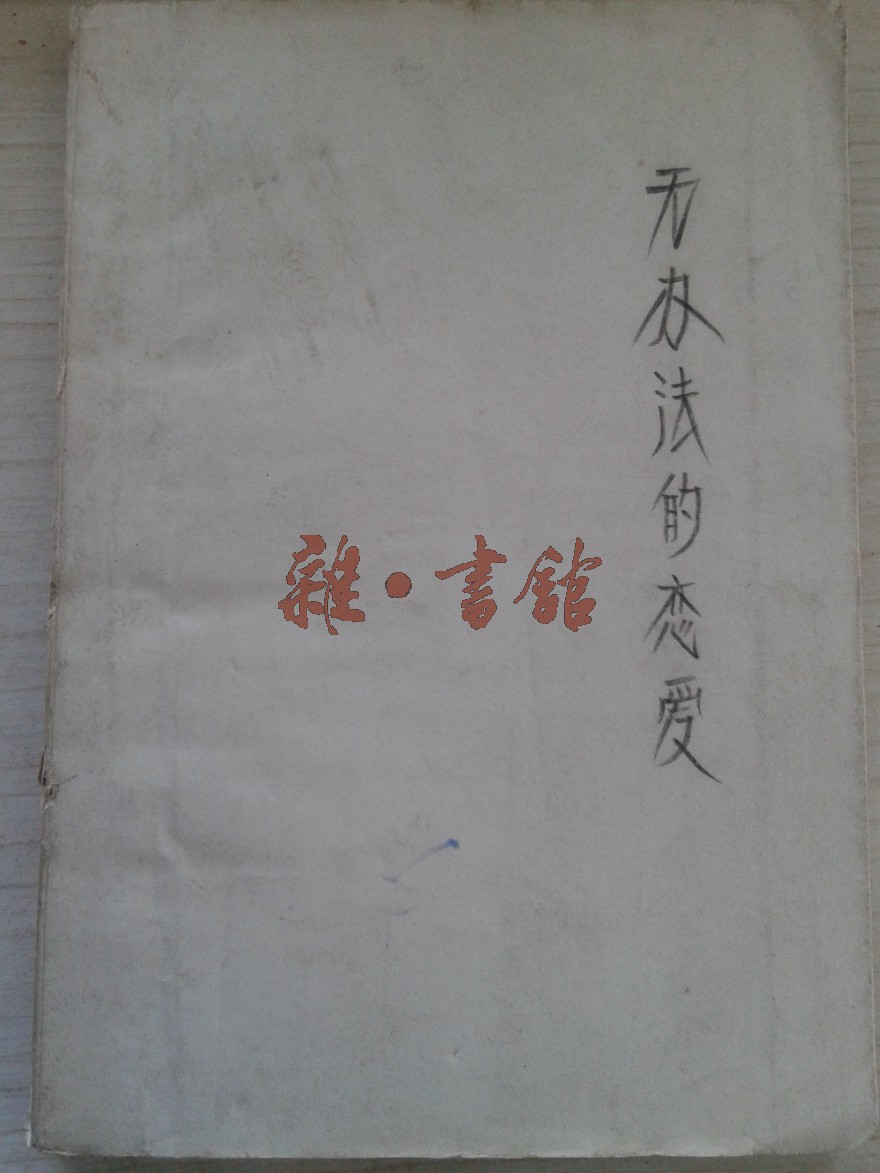 无办法的恋爱
雜·書館